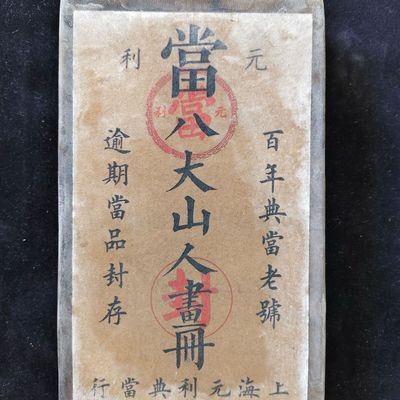 元利
當八大山人畫冊
百年典當老號
逾期當品封存
當
元利
封
上海元利典當行